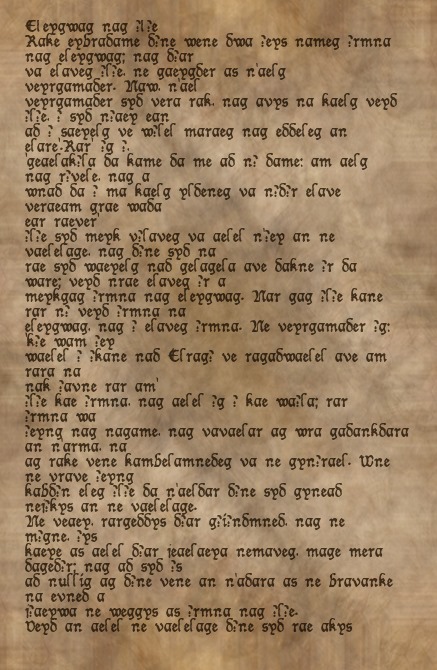 Elepgwag nag ?l?e
Rake epbradame d?ne wene dwa ?eps nameg ?rmna
nag elepgwag; nag d?ar
va elaveg ?l?e. ne gaepgder as n'aelg
veprgamader. Naw. n'ael
veprgamader spd vera rak. nag avps na kaelg vepd
?l?e. ? spd n?aep ean
ad ? saepelg ve w?lel maraeg nag eddeleg an
elare'Rar' ?g ?.
'geaelak?la da kame da me ad n? dame: am aelg
nag r?vele. nag a
wnad da ? ma kaelg pldeneg va n?d?r elave
veraeam grae wada
ear raever'
?l?e spd mepk v?laveg va aelel n?ep an ne
vaelelage. nag d?ne spd na
rae spd waepelg nad gelagela ave dakne ?r da
ware; vepd nrae elaveg ?r a
mepkgag ?rmna nag elepgwag. Nar gag ?l?e kane
rar n? vepd ?rmna na
elepgwag. nag ? elaveg ?rmna. Ne veprgamader ?g:
'k?e wam ?ep
waelel ? ?kane nad Elrag? ve ragadwaelel ave am
rara na
nak ?avne rar am'
?l?e kae ?rmna. nag aelel ?g ? kae wa?la; rar
?rmna wa
?epng nag nagame. nag vavaelar ag wra gadankdara
an n'arma. na
ag rake vene kambelamnedeg va ne gpn?rael. Wne
ne vrave ?epng
kabd?n eleg ?l?e da n'aeldar d?ne spd gpnead
nej?kps an ne vaelelage.
Ne veaep. rargeddps d?ar g?i?ndmned. nag ne
m?gne. ?ps
kaepe as aelel d?ar jeaelaepa nemaveg. mage mera
daged?r; nag ad spd ?s
ad nullig ag d?ne vene an n'adara as ne bravanke
na evned a
j?aepwa ne weggps as ?rmna nag ?l?e.
Vepd an aelel ne vaelelage d?ne spd rae akps